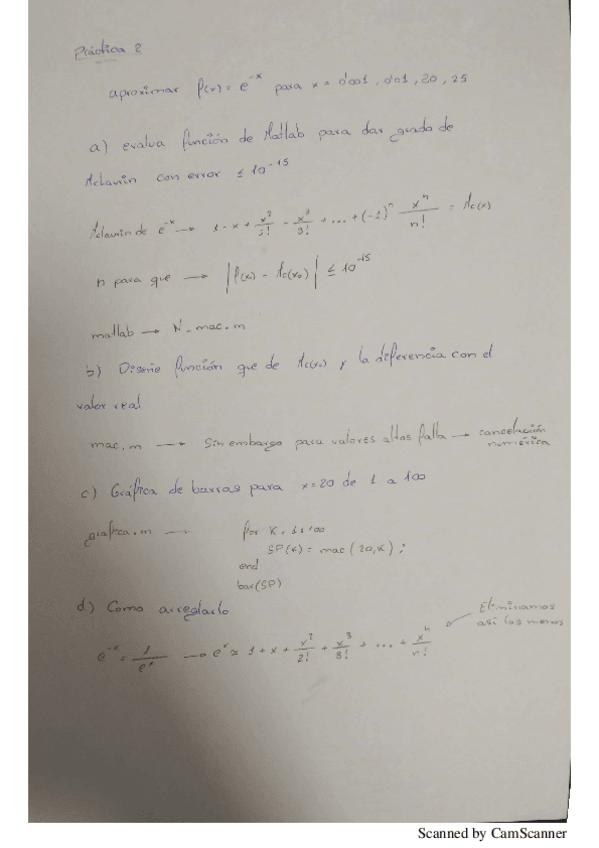 Práctica 2
aproximar f(x) = e^-x para x = 0'001, 0'01, 20, 25
a) evalua función de Matlab para dar grado de
Mclaurin con error ≤ 10^-15
Mclaurin de e^-x → 1 - x + x^2/2! - x^3/3! + ... + (-1)^n x^n/n! = Mc(x)
n para que → |f(x_0) - Mc(x_0)| ≤ 10^-15
matlab → N_mac.m
b) Diseñe función que de Mc(x_0) y la diferencia con el
valor real
mac.m → Sin embargo para valores altos falla → cancelación
numérica
c) Gráfica de barras para x=20 de 1 a 100
grafica.m → for K = 1:100
SP(K) = mac(20,K);
end
bar(SP)
d) Como arreglarlo
Eliminamos
así los menos
e^-x = 1/e^x → e^x ≈ 1 + x + x^2/2! + x^3/3! + ... + x^n/n!
Scanned by CamScanner